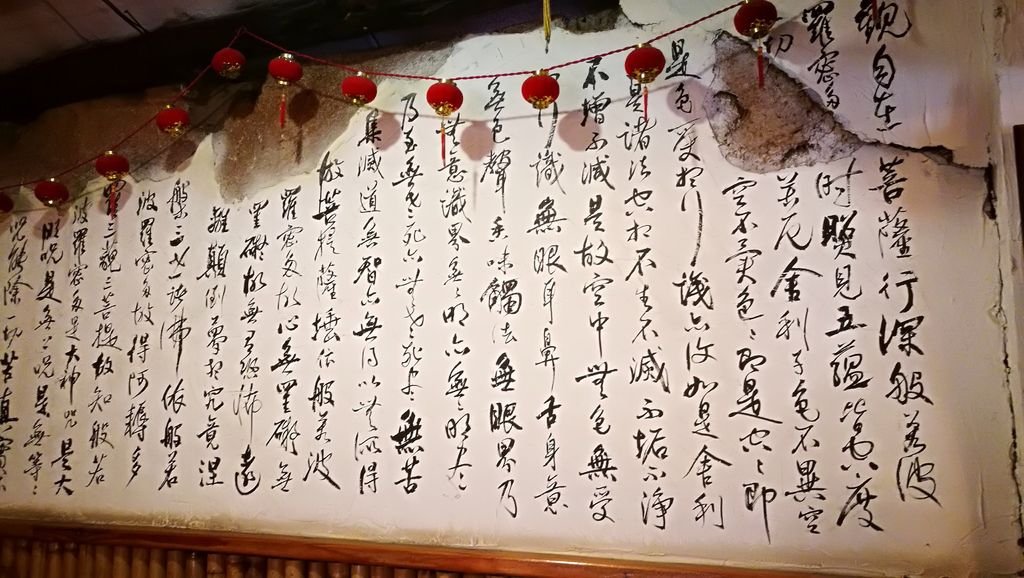 觀自在菩薩行深般若波
羅蜜多時照見五蘊皆空度
切苦厄舍利子色不異空
空不異色〻即是空〻即
是色受想行識亦復如是舍利
是諸法空相不生不滅不垢不淨
不增不減是故空中無色無受
行識無眼耳鼻舌身意
無色聲香味觸法無眼界乃
無意識界無〻明亦無〻明盡〻
乃至無老死亦無老死盡無苦
集滅道無智亦無得以無所得
故菩提薩埵依般若波
羅蜜多故心無罣礙無
罣礙故無有恐怖遠
離顛倒夢想究竟涅
槃三世諸佛依般若
波羅蜜多故得阿耨多
羅三藐三菩提故知般若
波羅蜜多是大神咒是大
明咒是無上咒是無等〻
咒能除一切苦真實不